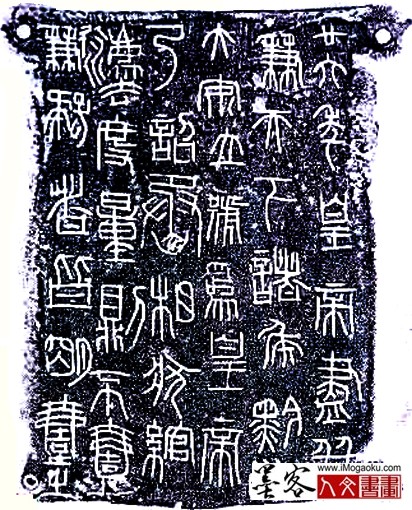 廿六年皇帝盡并
兼天下諸侯黔
大安立號為皇帝
乃詔丞相狀綰
灋度量則不壹
歉疑者皆明壹之
墨客
www.iMogaoku.com
人文書畫